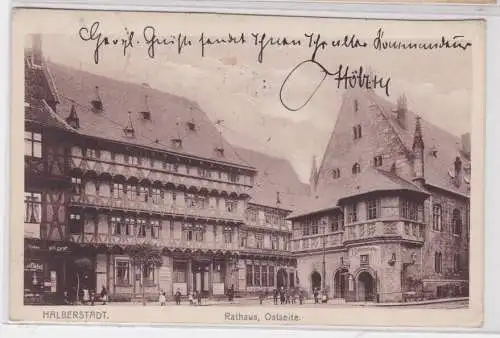 Herzl. Gruß sendet Ihnen Ihr alter Kommandeur
HALBERSTADT.
Rathaus, Ostseite.